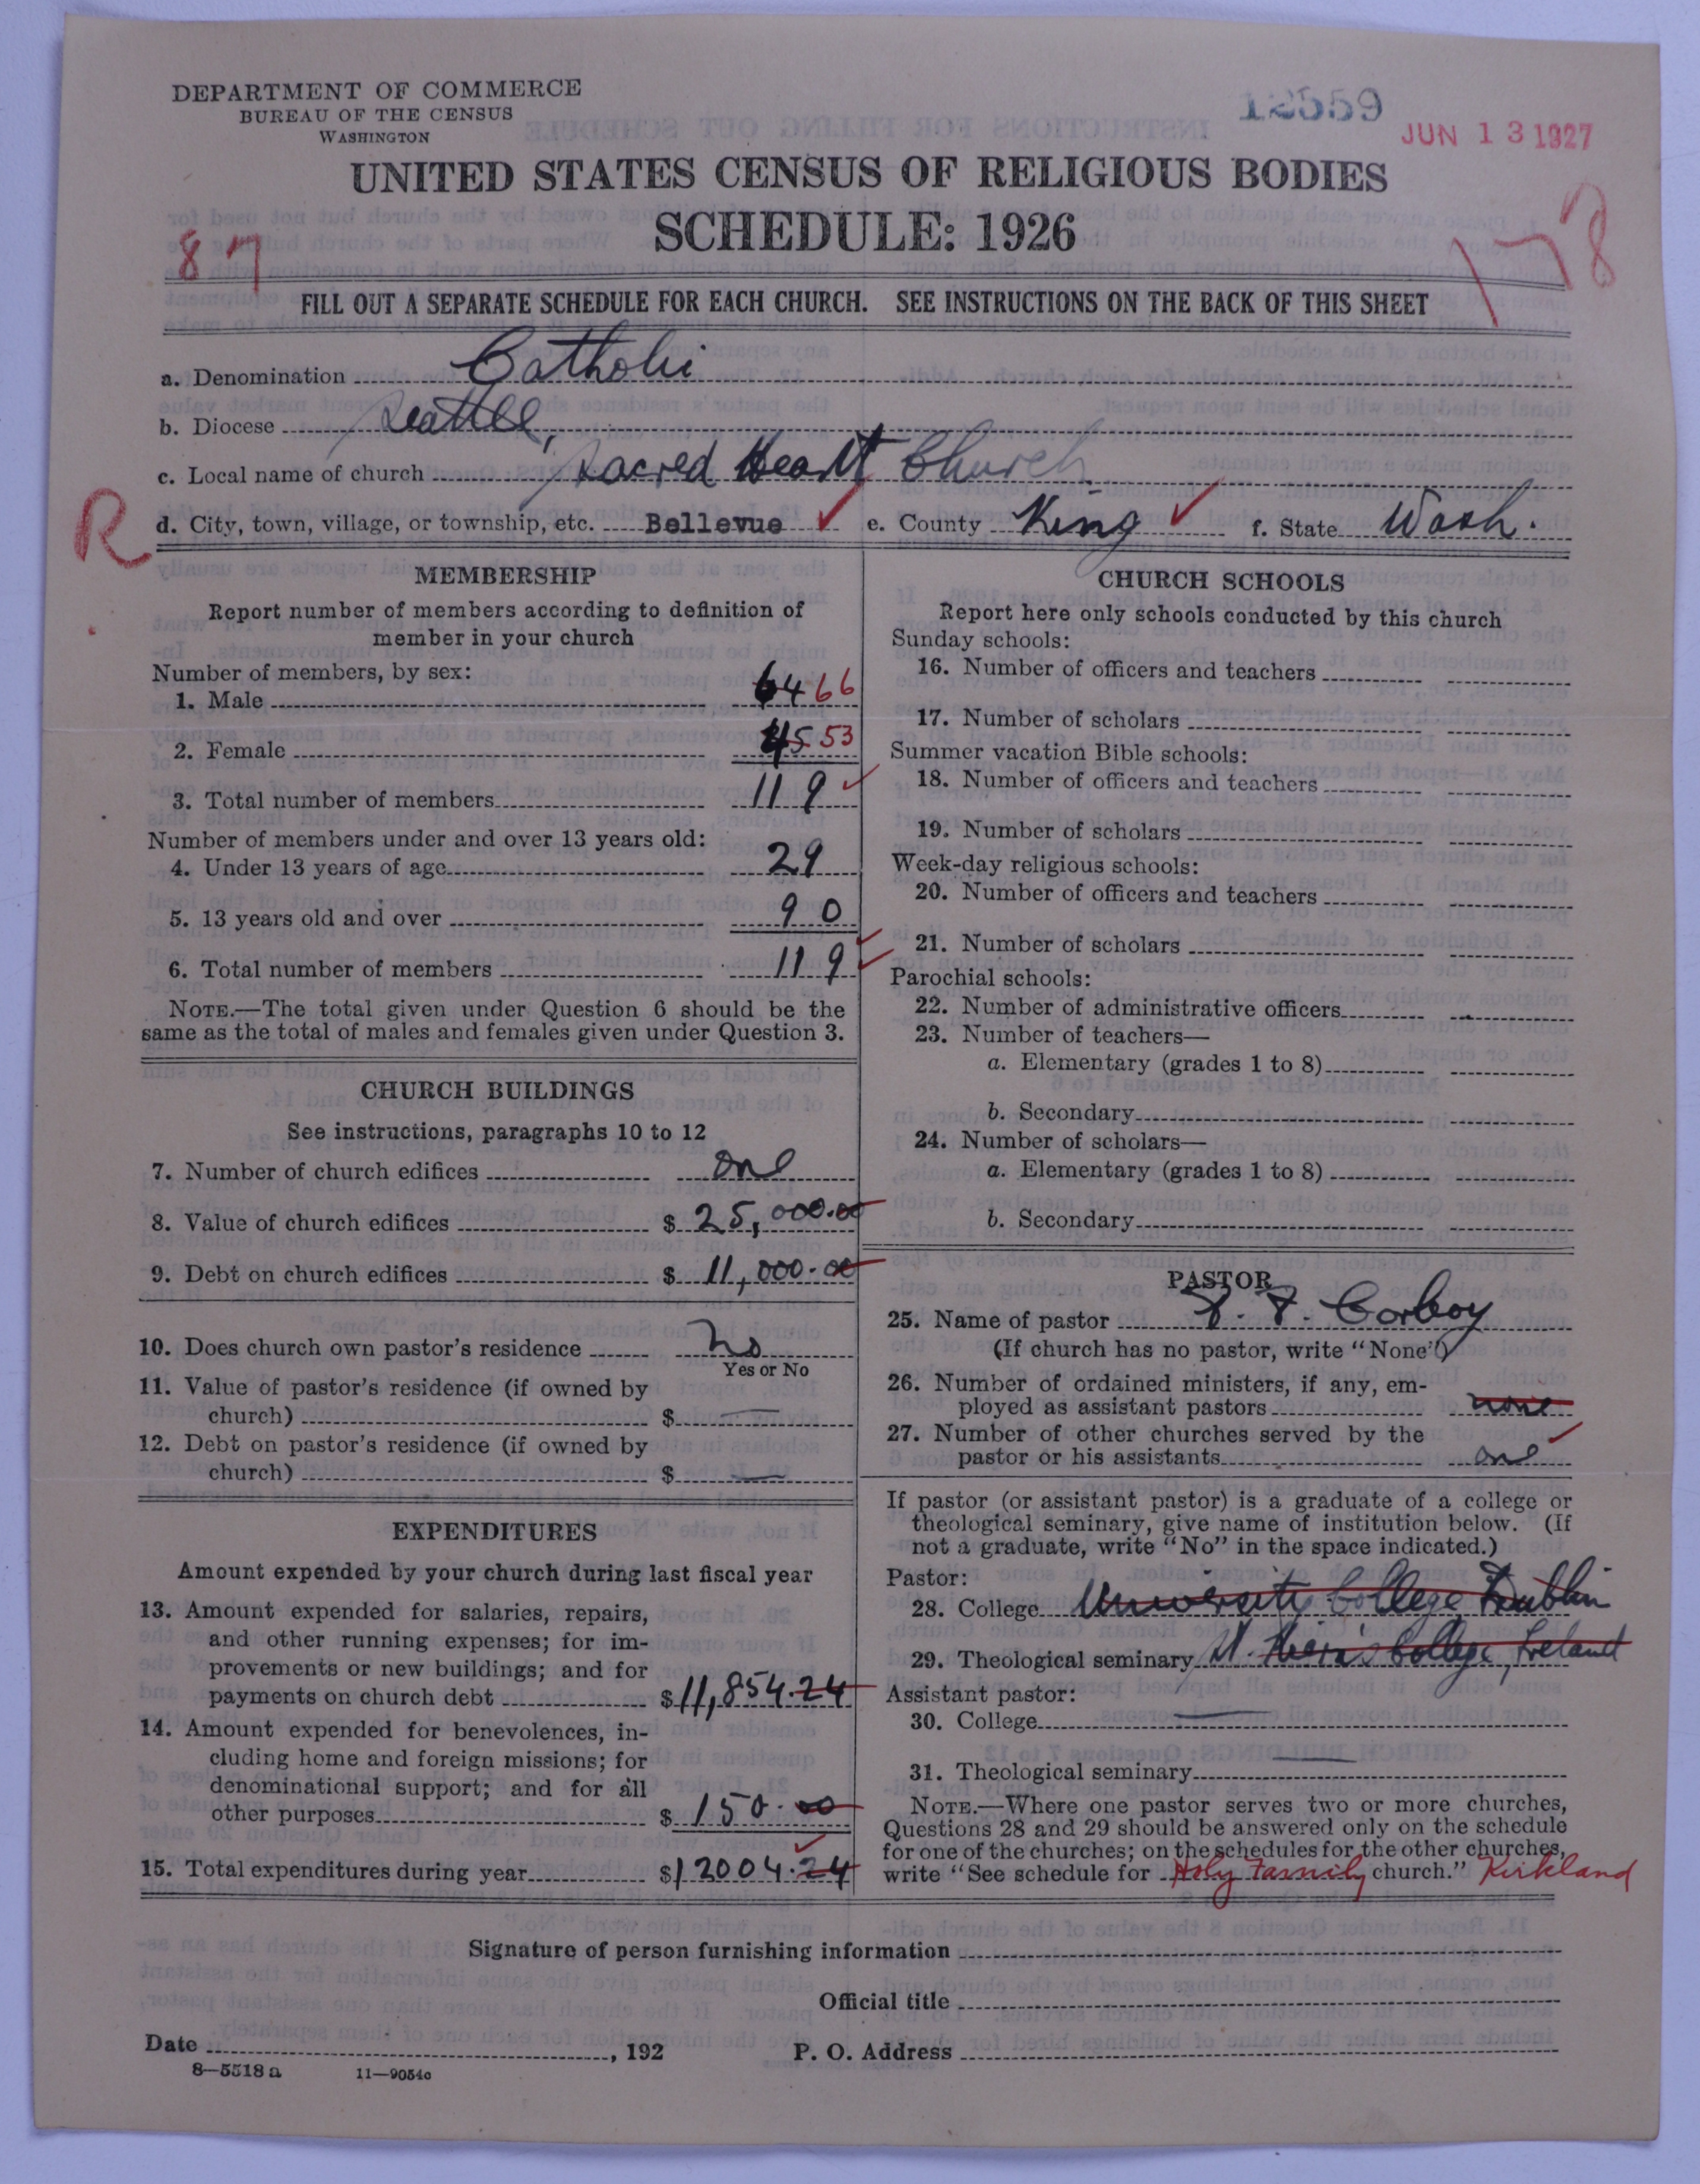 DEPARTMENT OF COMMERCE
BUREAU OF THE CENSUS
WASHINGTON
12559
JUN 13 1927
UNITED STATES CENSUS OF RELIGIOUS BODIES
SCHEDULE: 1926
87
178
FILL OUT A SEPARATE SCHEDULE FOR EACH CHURCH. SEE INSTRUCTIONS ON THE BACK OF THIS SHEET
a. Denomination Catholic
b. Diocese Seattle,
c. Local name of church Sacred Heart Church
R
d. City, town, village, or township, etc. Bellevue ✓ e. County King ✓ f. State Wash.
MEMBERSHIP
Report number of members according to definition of
member in your church
Number of members, by sex:
1. Male 64 66
2. Female 45 53
3. Total number of members 119 ✓
Number of members under and over 13 years old:
4. Under 13 years of age 29
5. 13 years old and over 90
6. Total number of members 119 ✓
NOTE.—The total given under Question 6 should be the
same as the total of males and females given under Question 3.
CHURCH BUILDINGS
See instructions, paragraphs 10 to 12
7. Number of church edifices one
8. Value of church edifices $ 25,000.00
9. Debt on church edifices $ 11,000.00
10. Does church own pastor's residence No
Yes or No
11. Value of pastor's residence (if owned by
church) $ —
12. Debt on pastor's residence (if owned by
church) $ —
EXPENDITURES
Amount expended by your church during last fiscal year
13. Amount expended for salaries, repairs,
and other running expenses; for im-
provements or new buildings; and for
payments on church debt $ 11,854.24
14. Amount expended for benevolences, in-
cluding home and foreign missions; for
denominational support; and for all
other purposes $ 150.00
15. Total expenditures during year $ 12004.24
CHURCH SCHOOLS
Report here only schools conducted by this church
Sunday schools:
16. Number of officers and teachers
17. Number of scholars
Summer vacation Bible schools:
18. Number of officers and teachers
19. Number of scholars
Week-day religious schools:
20. Number of officers and teachers
21. Number of scholars
Parochial schools:
22. Number of administrative officers
23. Number of teachers—
a. Elementary (grades 1 to 8)
b. Secondary
24. Number of scholars—
a. Elementary (grades 1 to 8)
b. Secondary
PASTOR
25. Name of pastor Corboy
(If church has no pastor, write "None")
26. Number of ordained ministers, if any, em-
ployed as assistant pastors none
27. Number of other churches served by the
pastor or his assistants one ✓
If pastor (or assistant pastor) is a graduate of a college or
theological seminary, give name of institution below. (If
not a graduate, write "No" in the space indicated.)
Pastor:
28. College University College, Dublin
29. Theological seminary College, Ireland
Assistant pastor:
30. College —
31. Theological seminary —
NOTE.—Where one pastor serves two or more churches,
Questions 28 and 29 should be answered only on the schedule
for one of the churches; on the schedules for the other churches,
write "See schedule for Holy Family church." Kirkland
Signature of person furnishing information
Official title
Date , 192 P. O. Address
8—5518 a 11—9054c